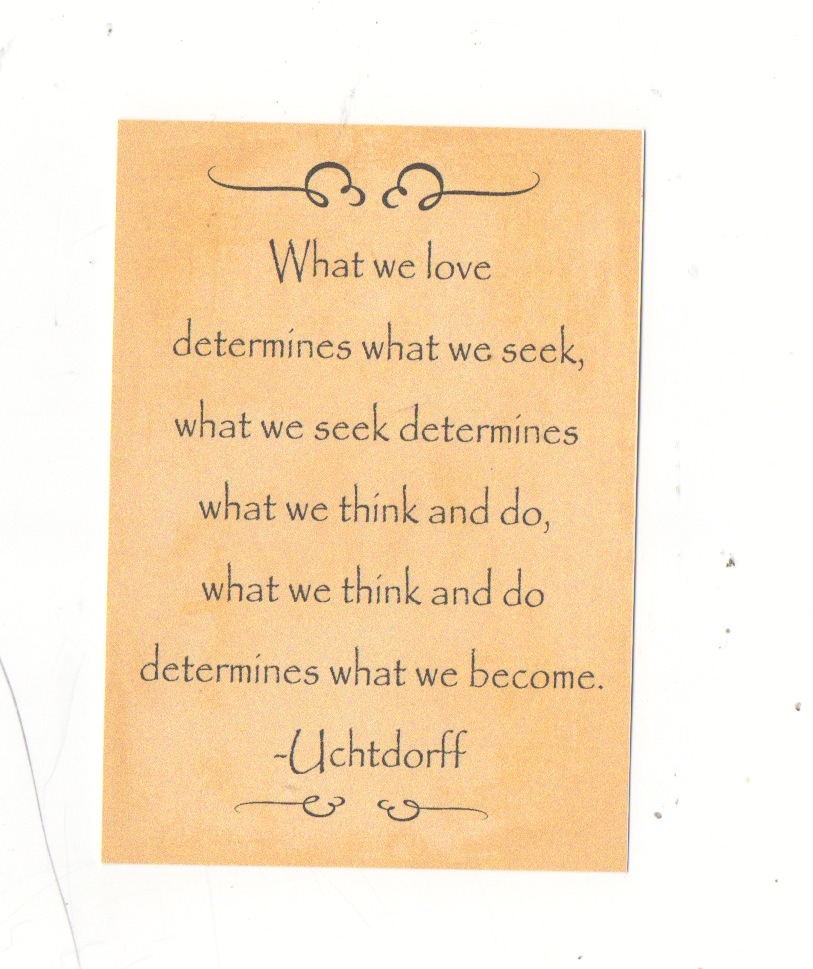 What we love
determines what we seek,
what we seek determines
what we think and do,
what we think and do
determines what we become.
-Uchtdorff